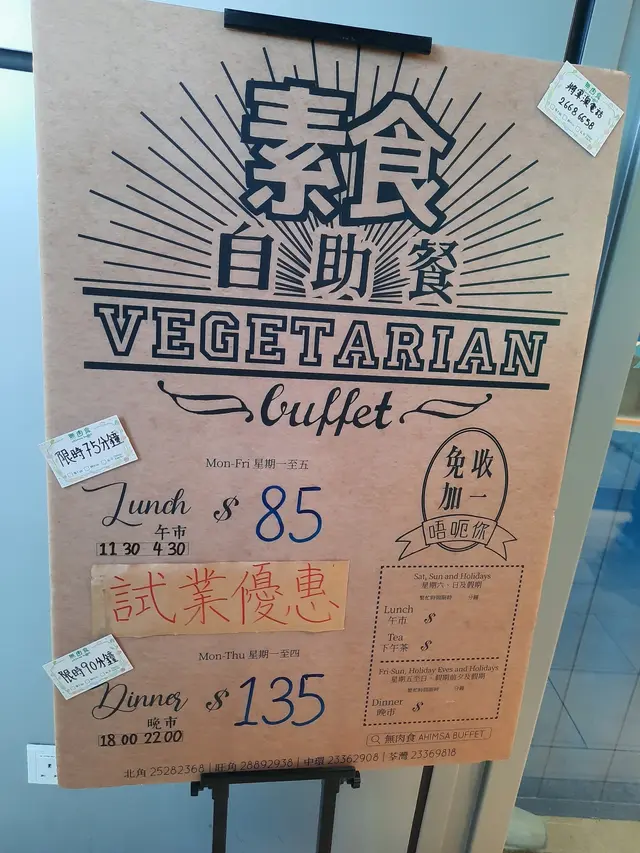 將軍澳電話
26686658
素食
自助餐
VEGETARIAN
buffet
無肉食
限時75分鐘
Mon-Fri 星期一至五
Lunch $ 85
午市
11 30 4 30
免收
加一
唔呃你
試業優惠
Sat, Sun and Holidays
星期六、日及假期
繁忙時間限時 分鐘
Lunch
午市 $
Tea
下午茶 $
限時90分鐘
Mon-Thu 星期一至四
Dinner $ 135
晚市
18 00 22 00
Fri-Sun, Holiday Eves and Holidays
星期五至日、假期前夕及假期
繁忙時間限時 分鐘
Dinner
晚市 $
無肉食 AHIMSA BUFFET
北角 25282368 | 旺角 28892938 | 中環 23362908 | 荃灣 23369818